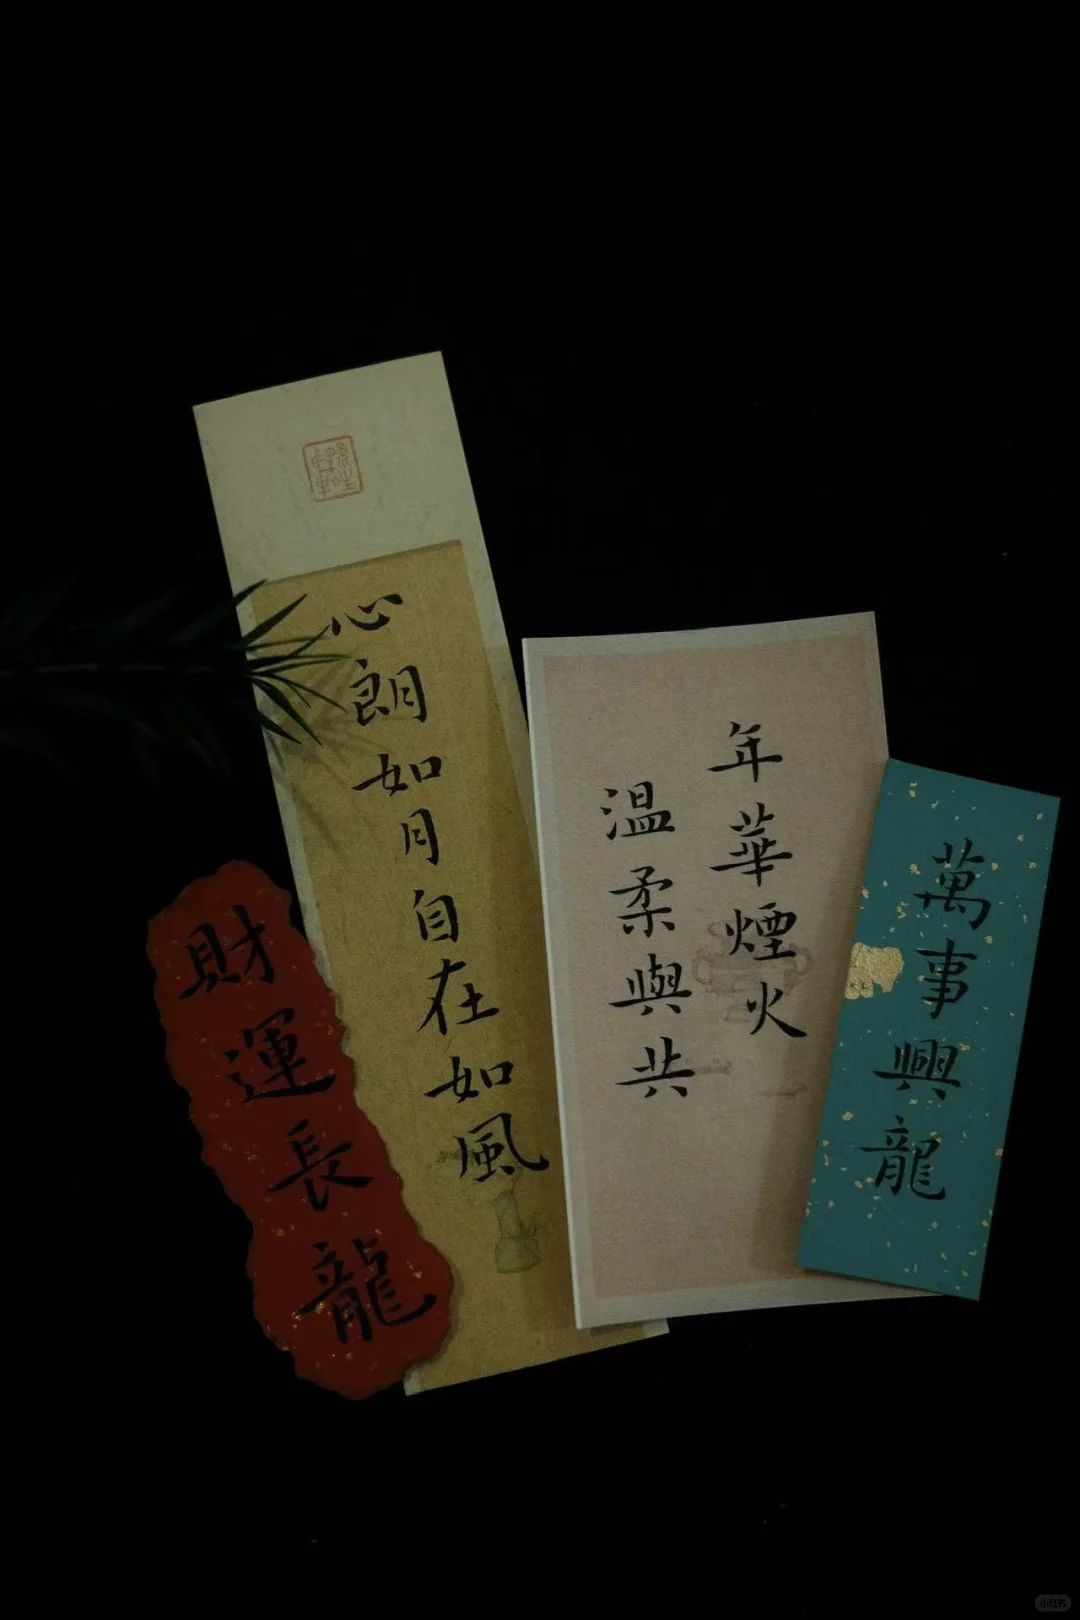 財運長龍
心朗如月自在如風
年華煙火
温柔與共
萬事興龍
小红书